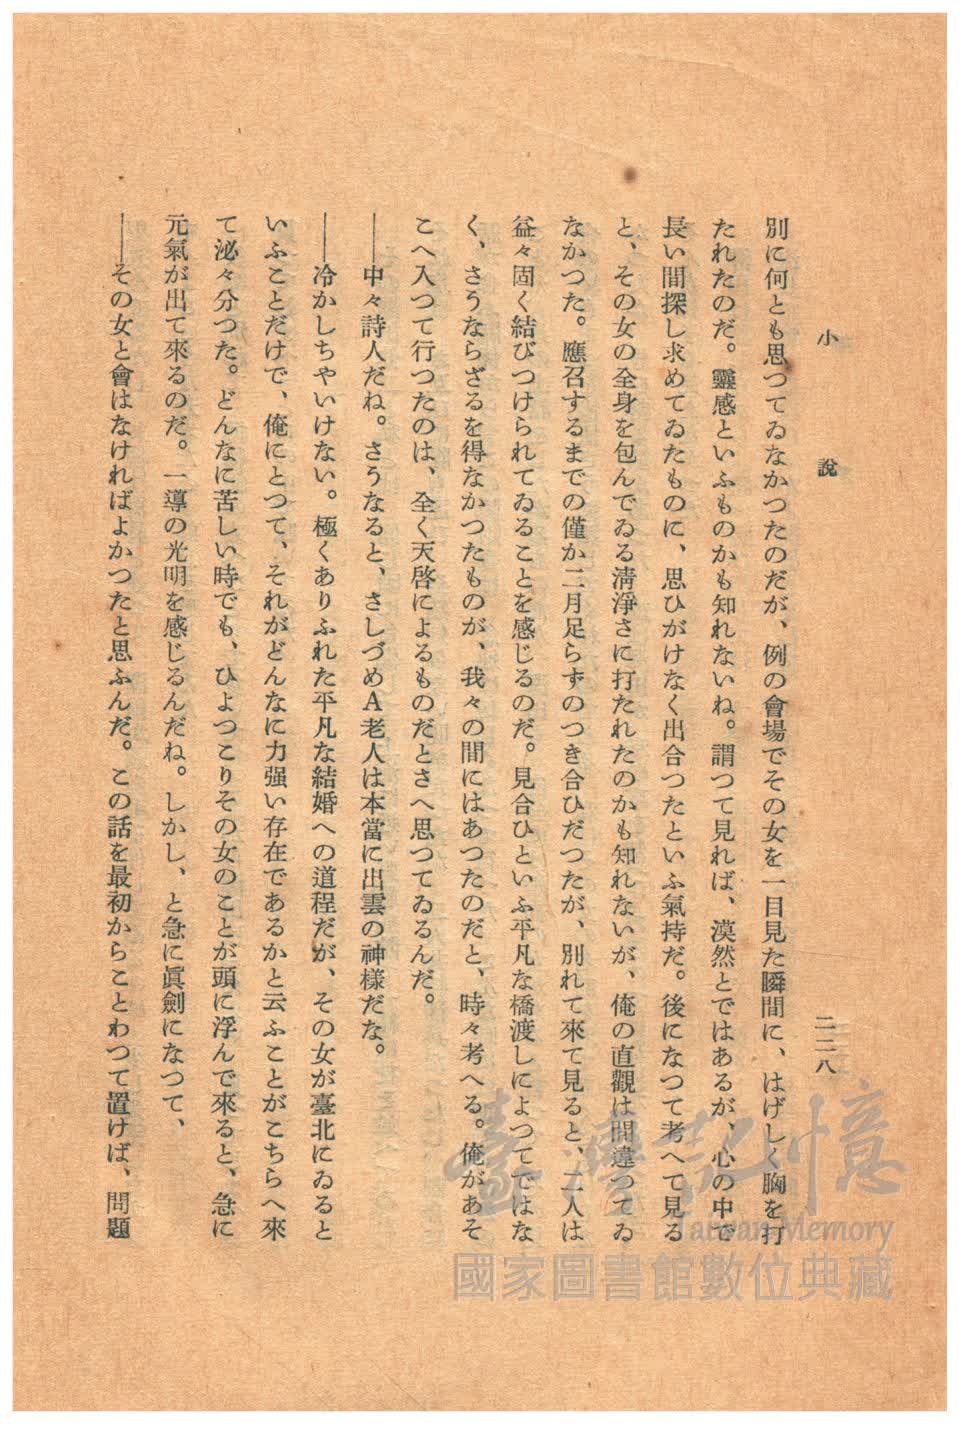 小說
二二八
別に何とも思つてゐなかつたのだが、例の會場でその女を一目見た瞬間に、はげしく胸を打
たれたのだ。靈感といふものかも知れないね。謂つて見れば、漠然とではあるが、心の中で
長い間探し求めてゐたものに、思ひがけなく出合つたといふ氣持だ。後になつて考へて見る
と、その女の全身を包んでゐる清淨さに打たれたのかも知れないが、俺の直觀は間違つてゐ
なかつた。應召するまでの僅か二月足らずのつき合ひだつたが、別れて來て見ると、二人は
益々固く結びつけられてゐることを感じるのだ。見合ひといふ平凡な橋渡しによつてではな
く、さうならざるを得なかつたものが、我々の間にはあつたのだと、時々考へる。俺があそ
こへ入つて行つたのは、全く天啓によるものだとさへ思つてゐるんだ。
――中々詩人だね。さうなると、さしづめA老人は本當に出雲の神樣だな。
――冷かしちやいけない。極くありふれた平凡な結婚への道程だが、その女が臺北にゐると
いふことだけで、俺にとつて、それがどんなに力强い存在であるかと云ふことがこちらへ來
て泌々分つた。どんなに苦しい時でも、ひよつこりその女のことが頭に浮んで來ると、急に
元氣が出て來るのだ。一導の光明を感じるんだね。しかし、と急に眞劍になつて、
――その女と會はなければよかつたと思ふんだ。この話を最初からことわつて置けば、問題
臺灣記憶
Taiwan Memory
國家圖書館數位典藏